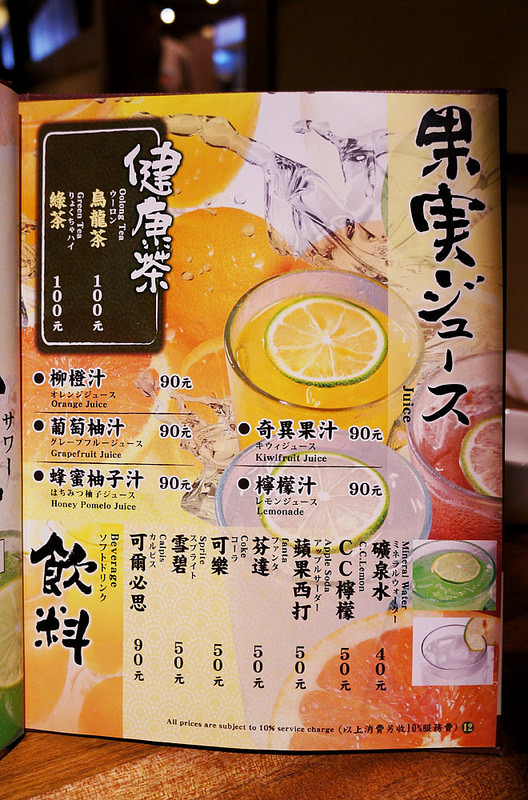 果実ジュース
Juice
健康茶
Oolong Tea
ウーロン
烏龍茶 100元
Green Tea
りょくちゃハイ
綠茶 100元
●柳橙汁 90元
オレンジジュース
Orange Juice
●葡萄柚汁 90元
グレープフルージュース
Grapefruit Juice
●蜂蜜柚子汁 90元
はちみつ柚子ジュース
Honey Pomelo Juice
●奇異果汁 90元
キウィジュース
Kiwifruit Juice
●檸檬汁 90元
レモンジュース
Lemonade
飲料
Beverage
ソフトドリンク
Mineral Water
ミネラルウォーター
礦泉水 40元
C.C.Lemon
CC檸檬 50元
Apple Soda
アップルサーダー
蘋果西打 50元
fanta
ファンタ
芬達 50元
Coke
コーラ
可樂 50元
Sprite
スプライト
雪碧 50元
Calpis
カルピス
可爾必思 90元
All prices are subject to 10% service charge (以上消費另收10%服務費) 12
サワー